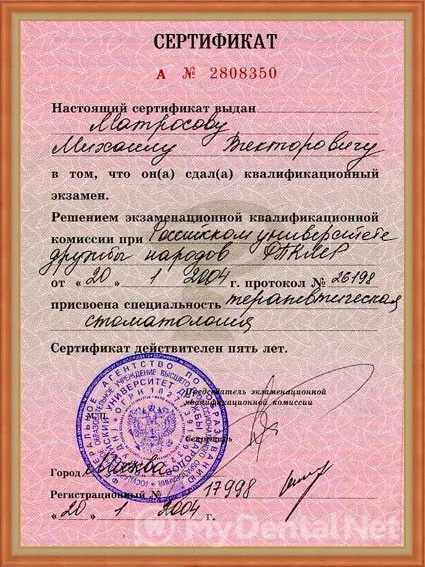 СЕРТИФИКАТ
А № 2808350
Настоящий сертификат выдан
Матросову
Михаилу Викторовичу
в том, что он(а) сдал(а) квалификационный
экзамен.
Решением экзаменационной квалификационной
комиссии при Российском университете
дружбы народов ФПКМР
от «20» 1 2004 г. протокол № 26198
присвоена специальность терапевтическая
стоматология
Сертификат действителен пять лет.
Председатель экзаменационной
квалификационной комиссии
М.П.
Секретарь
Город Москва
Регистрационный № 17998
«20» 1 2004 г.
MyDental.Net